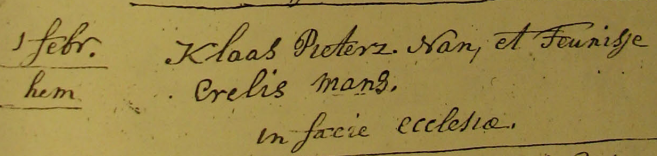 1 febr. Klaas Pieterz. Nan, et Teunisje
hem Crelis mans.
in facie ecclesiæ.